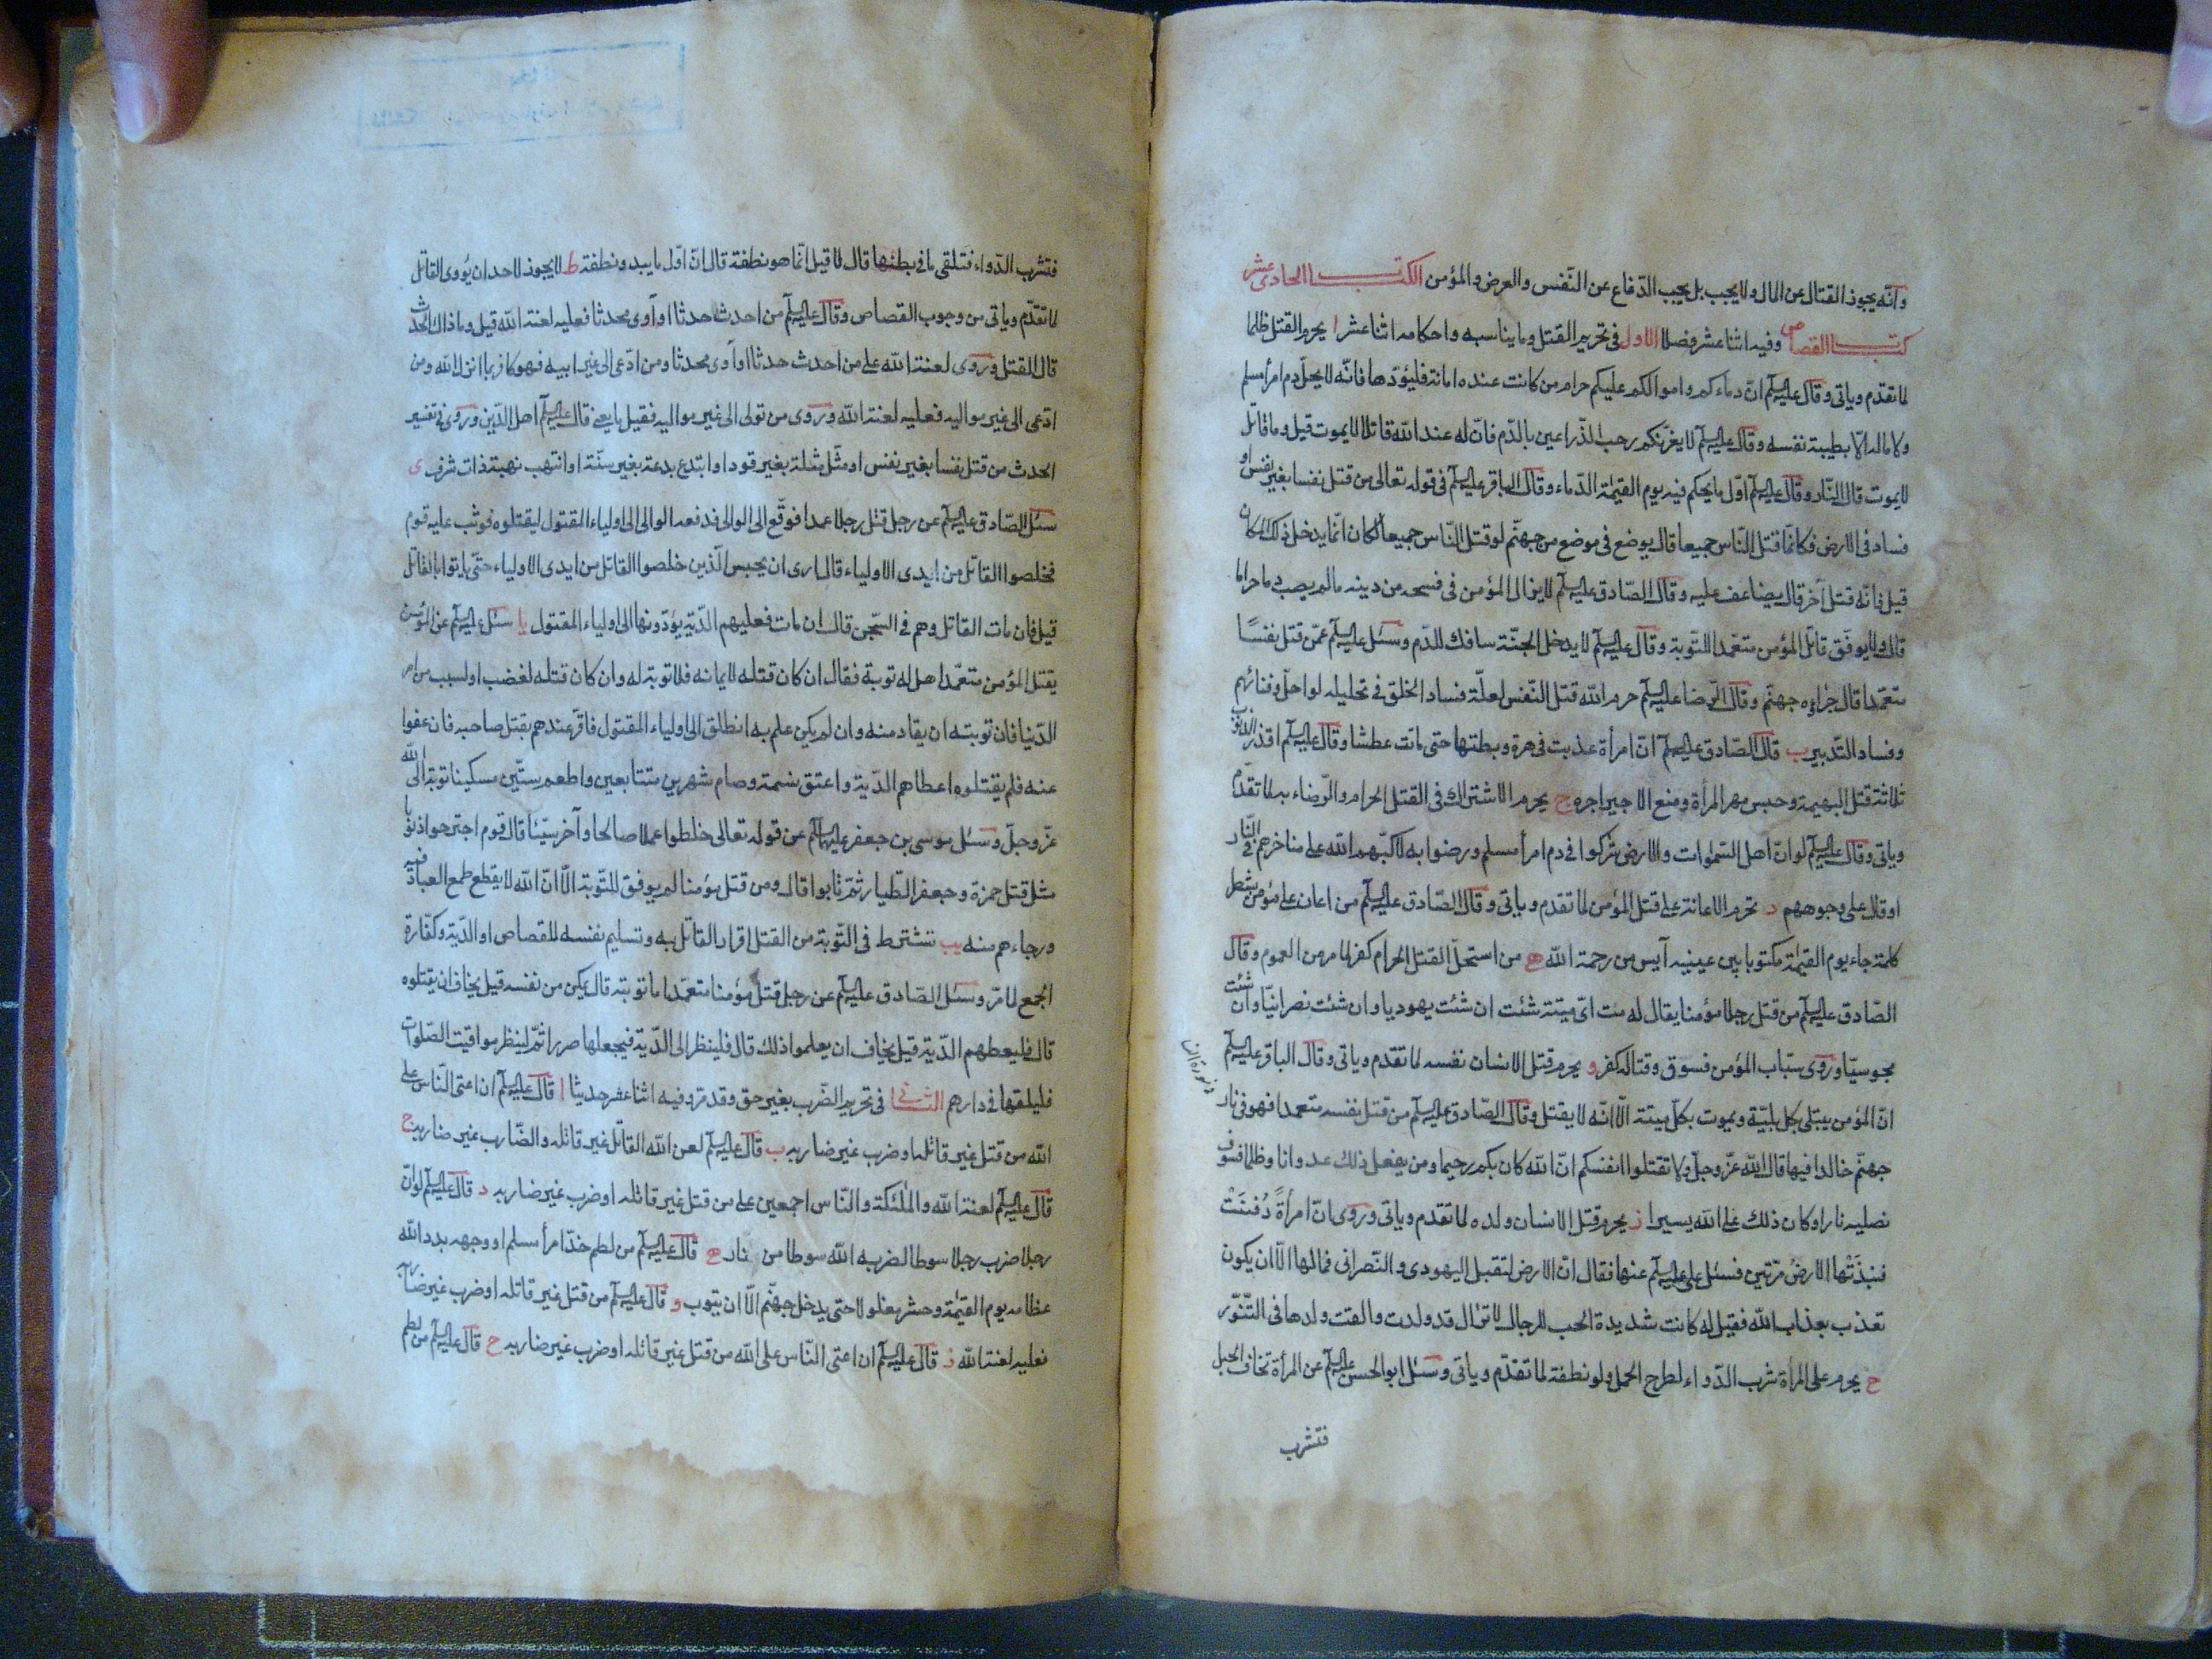 وانّه يجوز القتال عن المال ولا يجب بل يجب الدّفاع عن النّفس والعرض والمؤمن الكتاب الحادى عشر
كتاب القصاص وفيه اثنا عشر فصلا الاول فى تحريم القتل وما يناسبه واحكامه اثنا عشر ا يحرم القتل ظلما
لما تقدم وياتى وقال عليه السلم انّ دماءكم واموالكم عليكم حرام من كانت عنده امانة فليؤدّها فانّه لا يحلّ دم امرأ مسلم
ولا ماله الّا بطيبة نفسه وقال عليه السلم لا يغرّنكم رحب الذّراعين بالدّم فانّ له عند الله قاتلا لا يموت قيل وما قاتل
لا يموت قال النّار وقال عليه السلم اوّل ما يحكم فيه يوم القيمة الدّماء وقال الباقر عليه السلم فى قوله تعالى من قتل نفسا بغير نفس او
فساد فى الارض فكانّما قتل النّاس جميعا قال يوضع فى موضع من جهنّم لو قتل النّاس جميعا لكان انّما يدخل ذلك المكان
قيل فانّه قتل آخر قال يضاعف عليه وقال الصّادق عليه السلم لا يزال المؤمن فى فسحه من دينه ما لم يصب دما حراما
قال ولا يوفّق قاتل المؤمن متعمّدا للتّوبة وقال عليه السلم لا يدخل الجنّة سافك للدّم وسئل عليه السلم عمّن قتل نفسًا
متعمّدا قال جزاؤه جهنّم وقال الرّضا عليه السلم حرم الله قتل النّفس لعلّة فساد الخلق فى تحليله لو احلّ وفنائهم
وفساد التّدبير ب قال الصّادق عليه السلم انّ امرأة عذبت فى هرة ربطتها حتى ماتت عطشا وقال عليه السلم اقذر الذنوب
ثلاثة قتل البهيمة وحبس مهر المرأة ومنع الاجير اجره ج يحرم الاشتراك فى القتل الحرام والرّضاء به لما تقدّم
وياتى وقال عليه السلم لو انّ اهل السّموات والارض شركوا فى دم امرأ مسلم ورضوا به لاكبّهم الله على مناخرهم فى النّار
او قال على وجوههم د تحرم الاعانة على قتل المؤمن لما تقدم وياتى وقال الصّادق عليه السلم من اعان على مؤمن بشطر
كلمة جاء يوم القيمة مكتوبا بين عينيه آيس من رحمة الله ه من استحلّ القتل الحرام كفر لما مر من العموم وقال
الصّادق عليه السلم من قتل رجلا مؤمنا يقال له مت اىّ ميتة شئت ان شئت يهوديا وان شئت نصرانيّا وان شئت
مجوسيّا وروى سباب المؤمن فسوق وقتاله كفر و يحرم قتل الانسان نفسه لما تقدم وياتى وقال الباقر عليه السلم
انّ المؤمن يبتلى بكل بليّة ويموت بكلّ ميتة الّا انّه لا يقتل وقال الصّادق عليه السلم من قتل نفسه متعمدا فهو فى نار
جهنّم خالدا فيها قال الله عزّ وجلّ ولا تقتلوا انفسكم انّ الله كان بكم رحيما ومن يفعل ذلك عدوانا وظلما فسوف
نصليه نارا وكان ذلك على الله يسيرا ز يحرم قتل الانسان ولده لما تقدم وياتى وروى انّ امرأةً دُفنَتْ
فنبذَتْها الارضُ مرّتين فسئل على عليه السلم عنها فقال انّ الارض لتقبل اليهودى والنّصرانى فمالها الّا ان يكون
تعذب بعذاب الله فقيل له كانت شديدة الحب للرجال لا تزال قد ولدت والقت ولدها فى التّنّور
ح يحرم على المرأة شرب الدّواء لطرح الحمل ولو نطفة لما تقدّم وياتى وسئل ابو الحسن عليه السلم عن المرأة تخاف الحبل
فتشرب
فتشرب الدّواء فتلقى ما فى بطنها قال لا قيل انّما هو نطفة قال انّ اوّل ما يبدو نطفة ط لا يجوز لاحد ان يؤوى القاتل
لما تقدّم وياتى من وجوب القصاص وقال عليه السلم من احدث حدثا او آوى محدثا فعليه لعنة الله قيل وما ذاك الحدث
قال القتل وروى لعنة الله على من احدث حدثا او آوى محدثا ومن ادّعى الى غير ابيه فهو كافر بما انزل الله ومن
ادّعى الى غير مواليه فعليه لعنة الله وروى من تولى الى غير مواليه فقيل ما يعنى قال عليه السلم اهل الدّين وروى فى تفسير
الحدث من قتل نفسا بغير نفس او مثّل مثلة بغير قود او ابتدع بدعة بغير سنّة او انتهب نهبة ذات شرف ى
سئل الصّادق عليه السلم عن رجل قتل رجلا عمدا فوقّع الى الوالى فدفعه الوالى الى اولياء المقتول ليقتلوه فوثب عليه قوم
فخلصوا القاتل من ايدى الاولياء قال ارى ان يحبس الّذين خلصوا القاتل من ايدى الاولياء حتّى ياتوا بالقاتل
قيل فان مات القاتل وهم فى السّجن قال ان مات فعليهم الدّية يؤدّونها الى اولياء المقتول يا سئل عليه السلم عن المؤمن
يقتل المؤمن متعمّدا هل له توبة فقال ان كان قتله لايمانه فلا توبة له وان كان قتله لغضب او لسبب من امر
الدّنيا فان توبته ان يقاد منه وان لم يكن علم به انطلق الى اولياء المقتول فاقرّ عندهم بقتل صاحبه فان عفوا
عنه فلم يقتلوه اعطاهم الدّية واعتق نسمة وصام شهرين متتابعين واطعم ستّين مسكينا توبة الى الله
عزّ وجلّ وسئل موسى بن جعفر عليهما السلم عن قوله تعالى خلطوا عملا صالحا وآخر سيّئا قال قوم اجترحوا ذنوبا
مثل قتل حمزة وجعفر الطّيار ثمّ تابوا قال ومن قتل مؤمنا لم يوفق للتّوبة الّا انّ الله لا يقطع طمع العباد فيه
ورجاءهم منه يب تشترط فى التّوبة من القتل اقرار القاتل به وتسليم نفسه للقصاص او الدّية وكفّارة
الجمع لما مرّ وسئل الصّادق عليه السلم عن رجل قتل مؤمنا متعمّدا ما توبته قال يمكن من نفسه قيل يخاف ان يقتلوه
قال فليعطهم الدّية قيل يخاف ان يعلموا ذلك قال فلينظر الى الدّية فيجعلها صررا ثمّ لينظر مواقيت الصّلوات
فليلقها فى دارهم الثّانى فى تحريم الضّرب بغير حق وقد مرّ وفيه اثنا عشر حديثا ا قال عليه السلم ان اعتى النّاس على
الله من قتل غير قاتله او ضرب غير ضاربه ب قال عليه السلم لعن الله القاتل غير قاتله والضّارب غير ضاربه ج
قال عليه السلم لعنة الله والملئكة والنّاس اجمعين على من قتل غير قاتله او ضرب غير ضاربه د قال عليه السلم لو انّ
رجلا ضرب رجلا سوطا لضربه الله سوطا من نار ه قال عليه السلم من لطم خدّ امرأ مسلم او وجهه بدد الله
عظامه يوم القيمة وحشر مغلولا حتى يدخل جهنّم الّا ان يتوب و قال عليه السلم من قتل غير قاتله او ضرب غير ضاربه
فعليه لعنة الله ز قال عليه السلم ان اعتى النّاس على الله من قتل غير قاتله او ضرب غير ضاربه ح قال عليه السلم من لطم